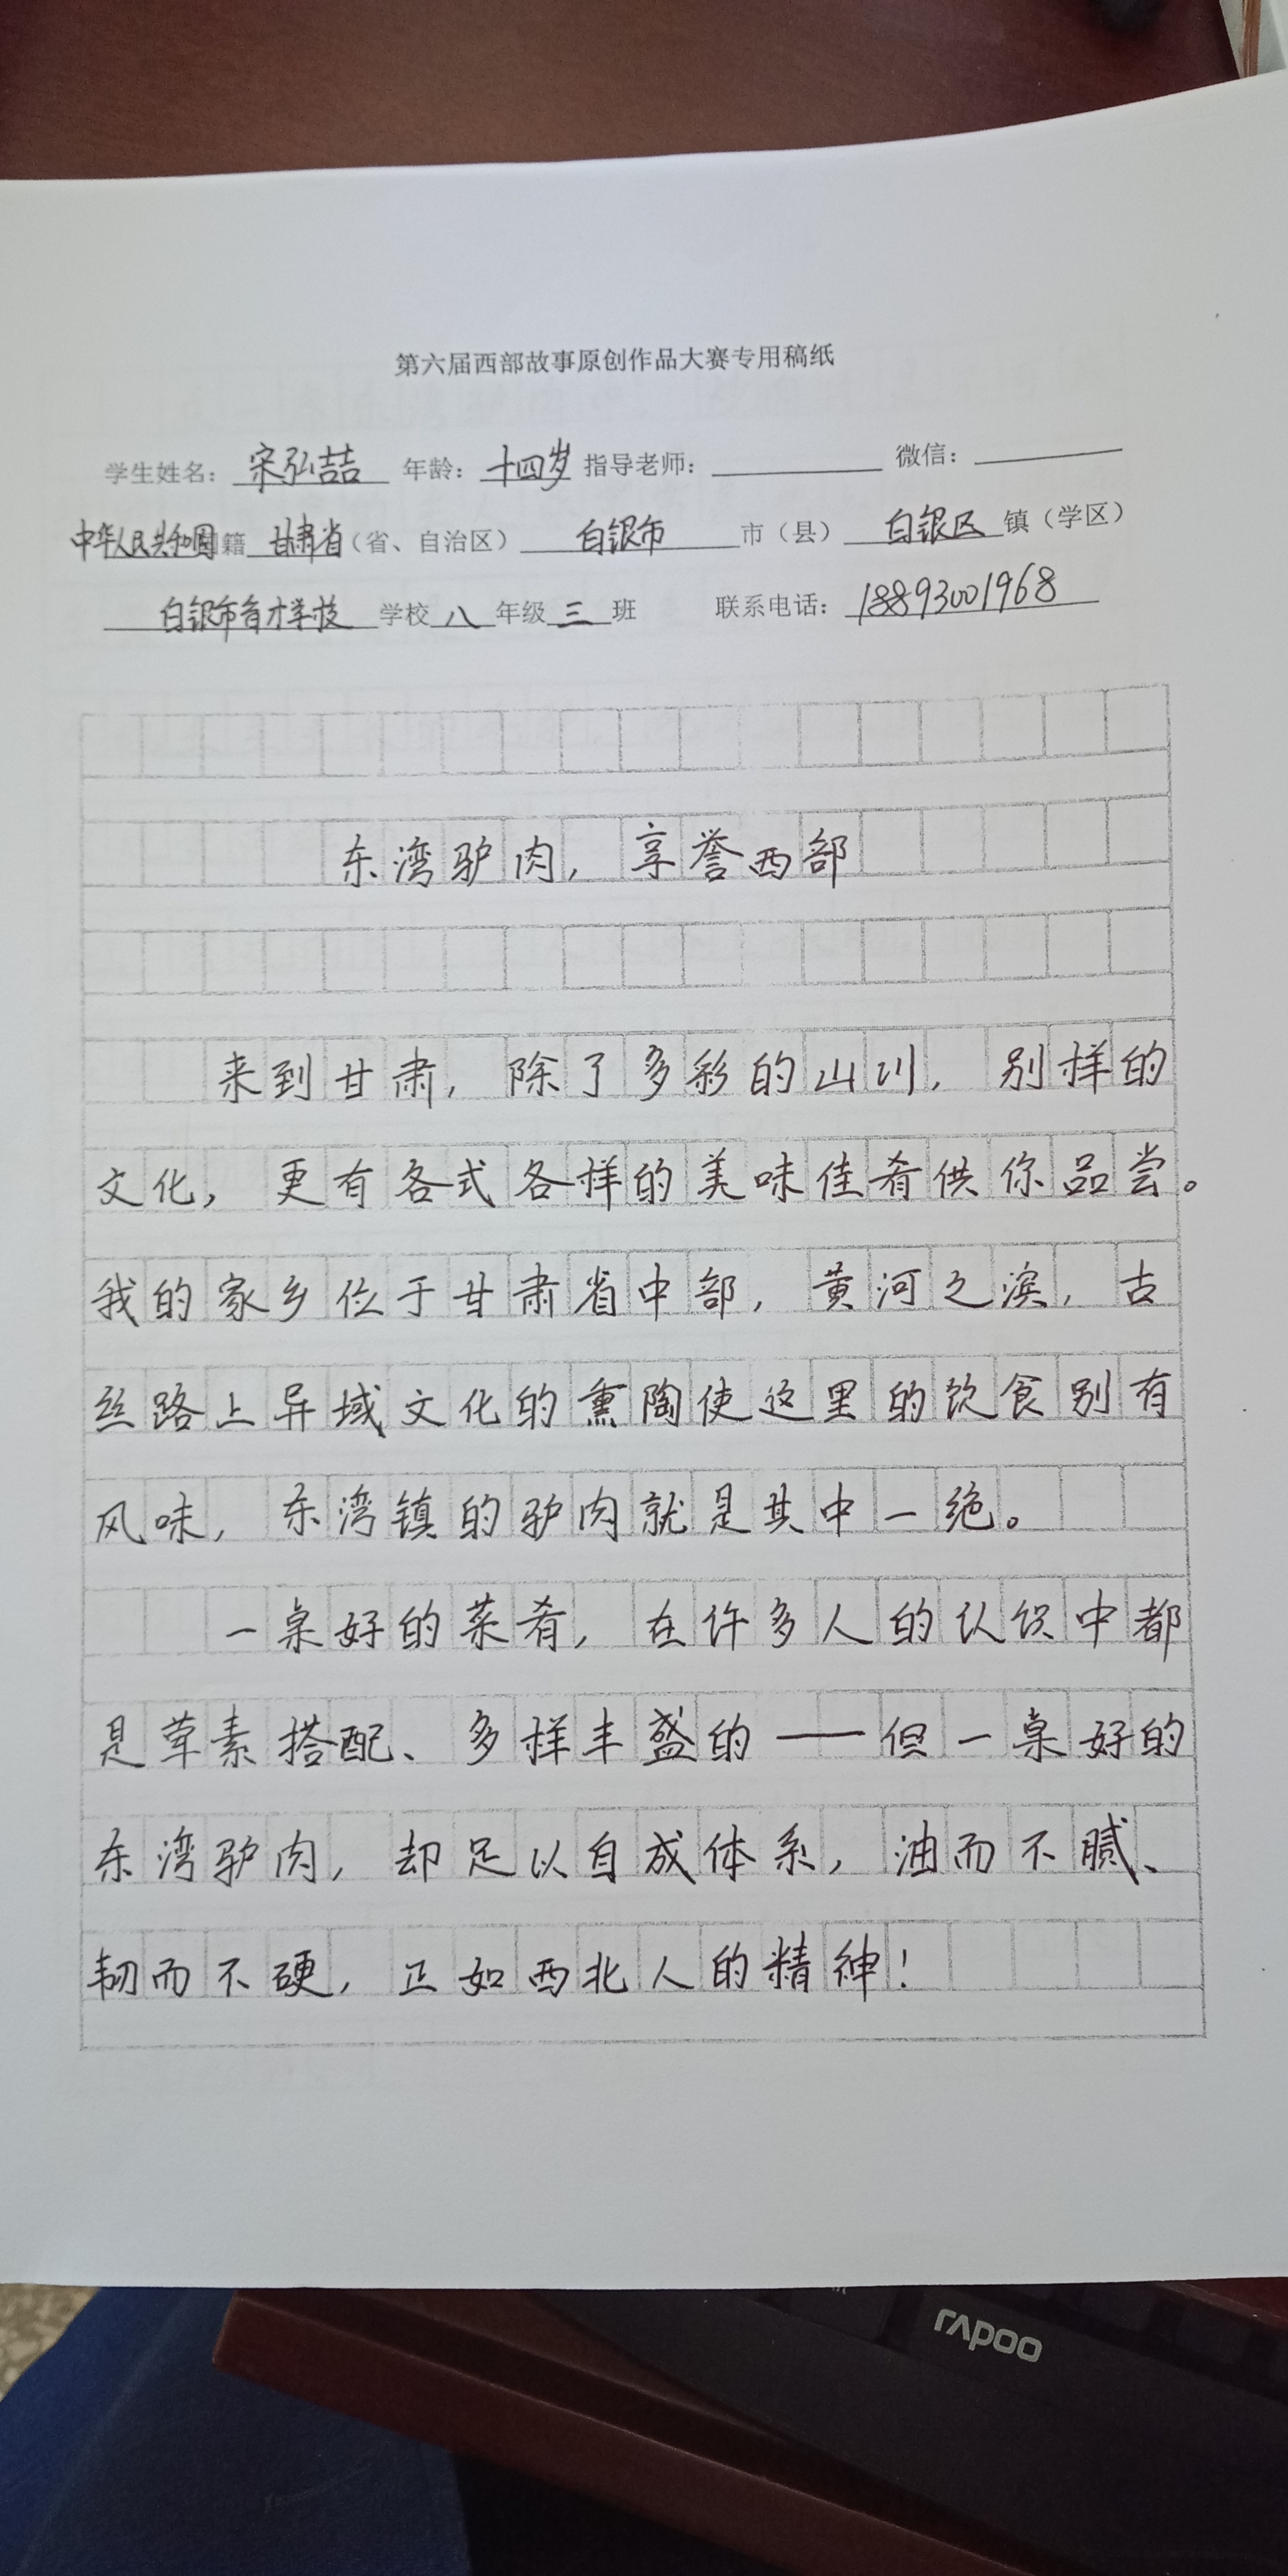 第六届西部故事原创作品大赛专用稿纸
学生姓名：宋弘喆 年龄：十四岁 指导老师： 微信：
中华人民共和国籍 甘肃省（省、自治区） 白银市 市（县） 白银区 镇（学区）
白银市育才学校 学校 八 年级 三 班 联系电话：18893001968
东湾驴肉，享誉西部
来到甘肃，除了多彩的山川，别样的
文化，更有各式各样的美味佳肴供你品尝。
我的家乡位于甘肃省中部，黄河之滨，古
丝路上异域文化的熏陶使这里的饮食别有
风味，东湾镇的驴肉就是其中一绝。
一桌好的菜肴，在许多人的认识中都
是荤素搭配、多样丰盛的——但一桌好的
东湾驴肉，却足以自成体系，油而不腻、
韧而不硬，正如西北人的精神！
rapoo